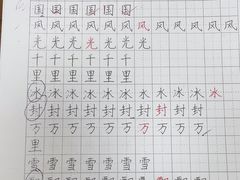 国 国 国 国 国 国
风 风 风 风 风 风 风 风 风 风 风 风
光 光 光 光 光 光 光
千 千 千 千 千 千
里 里 里 里 里 里
冰 冰 冰 冰 冰 冰 冰 冰 冰 冰 冰
封 封 封 封 封 封 封 封 封 封
万 万 万 万 万 万 万 万 万 万
里
雪 雪 雪 雪 雪 雪 雪 雪 雪 雪